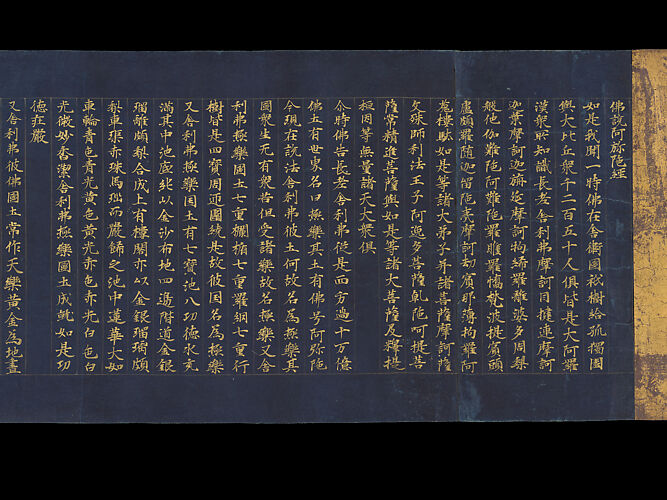 佛說阿弥陁經
如是我聞一時佛在舍衛國祇樹給孤獨園
與大比丘衆千二百五十人俱皆是大阿羅
漢衆所知識長老舍利弗摩訶目揵連摩訶
迦葉摩訶迦旃延摩訶拘絺羅離婆多周梨
槃他伽難陁阿難陁羅睺羅憍梵波提賓頭
盧頗羅隨迦留陁夷摩訶劫賓那薄拘羅阿
㝹樓馱如是等諸大弟子并諸菩薩摩訶薩
文殊師利法王子阿逸多菩薩乾陁呵提菩
薩常精進菩薩與如是等諸大菩薩及釋提
桓因等無量諸天大衆俱
尒時佛告長老舍利弗從是西方過十万億
佛土有世界名曰極樂其土有佛号阿弥陁
今現在說法舍利弗彼土何故名為極樂其
國衆生无有衆苦但受諸樂故名極樂又舍
利弗極樂國土七重欄楯七重羅網七重行
樹皆是四寳周迊圍繞是故彼國名為極樂
又舍利弗極樂國土有七寳池八功德水充
滿其中池底純以金沙布地四邊階道金銀
瑠璃頗梨合成上有樓閣亦以金銀瑠璃頗
梨車渠赤珠馬瑙而嚴飾之池中蓮華大如
車輪青色青光黃色黃光赤色赤光白色白
光微妙香潔舍利弗極樂國土成就如是功
德莊嚴
又舍利弗彼佛國土常作天樂黃金為地晝